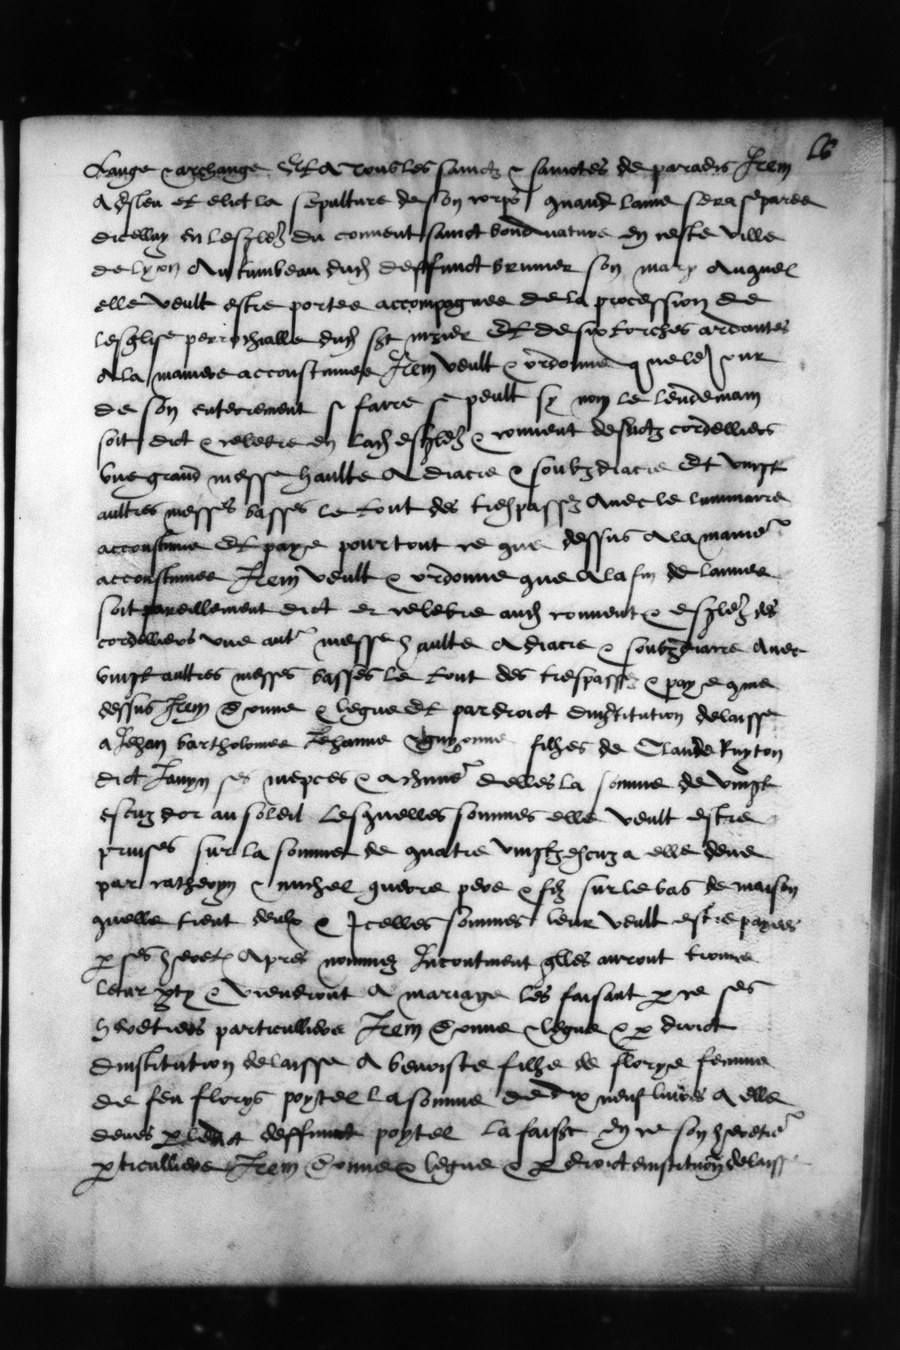 Lange & archange Et A toutes les sainctz & sainctes de paradis Item
A esleu et elict la sepulture de son corps quand lame sera separee
dicelluy en leglise du convent sainct bonaventure en ceste ville
de lyon Au tumbeau dud deffunct brunier son mary Auquel
elle veult estre portee accompagnee de la procession de
lesglise perrochialle dud Et de six torches ardantes
A la maniere accoustumee Item veult & ordonne que le jour
de son enterrement si faire se peult sy non le lendemain
soit dict & celebre en lad esglise & convent desdictz cordelliers
une grand messe haulte A diacre & soubzdiacre Et vingt
aultres messes basses le tout des trespassez Avec le luminaire
accoustume Et paye pour tout ce que dessus A la maniere
accoustumee Item veult & ordonne que A la fin de lannee
soit pareillement dict et celebre aud convent & esglise des
cordelliers une autre messe haulte A diacre & soubzdiacre Avec
vingt aultres messes basses le tout des trespassez & paye que
dessus Item donne & legue et par droict dinstitution delaisse
A Jehan bartholomee Jehanne & guyonne filhes de Claude Ruyton
dict Janyn ses niepces & A chune delles la somme de vingt
escuz dor au soleil Lesquelles sommes elle veult estre
prinses sur la somme de quatre vingtz escuz a elle deue
par catheryn & michel pere & filz sur le bas de maison
quelle tient deulx & Icelles sommes leur veult estre payees
p ses heretiers Apres nommez Incontinent qlles auront trouve
leur & viendront A mariage les faisant p ce ses
heretiers particulliere Item donne & legue & p droict
dinstitution delaisse A benoiste filhe de florye femme
de feu florys poytel la somme de dix neuf livres A elle
deues p led deffunct poytel la faisant en ce son heretiere
pticulliere Item donne & legue & p droict dinstitution delaisse